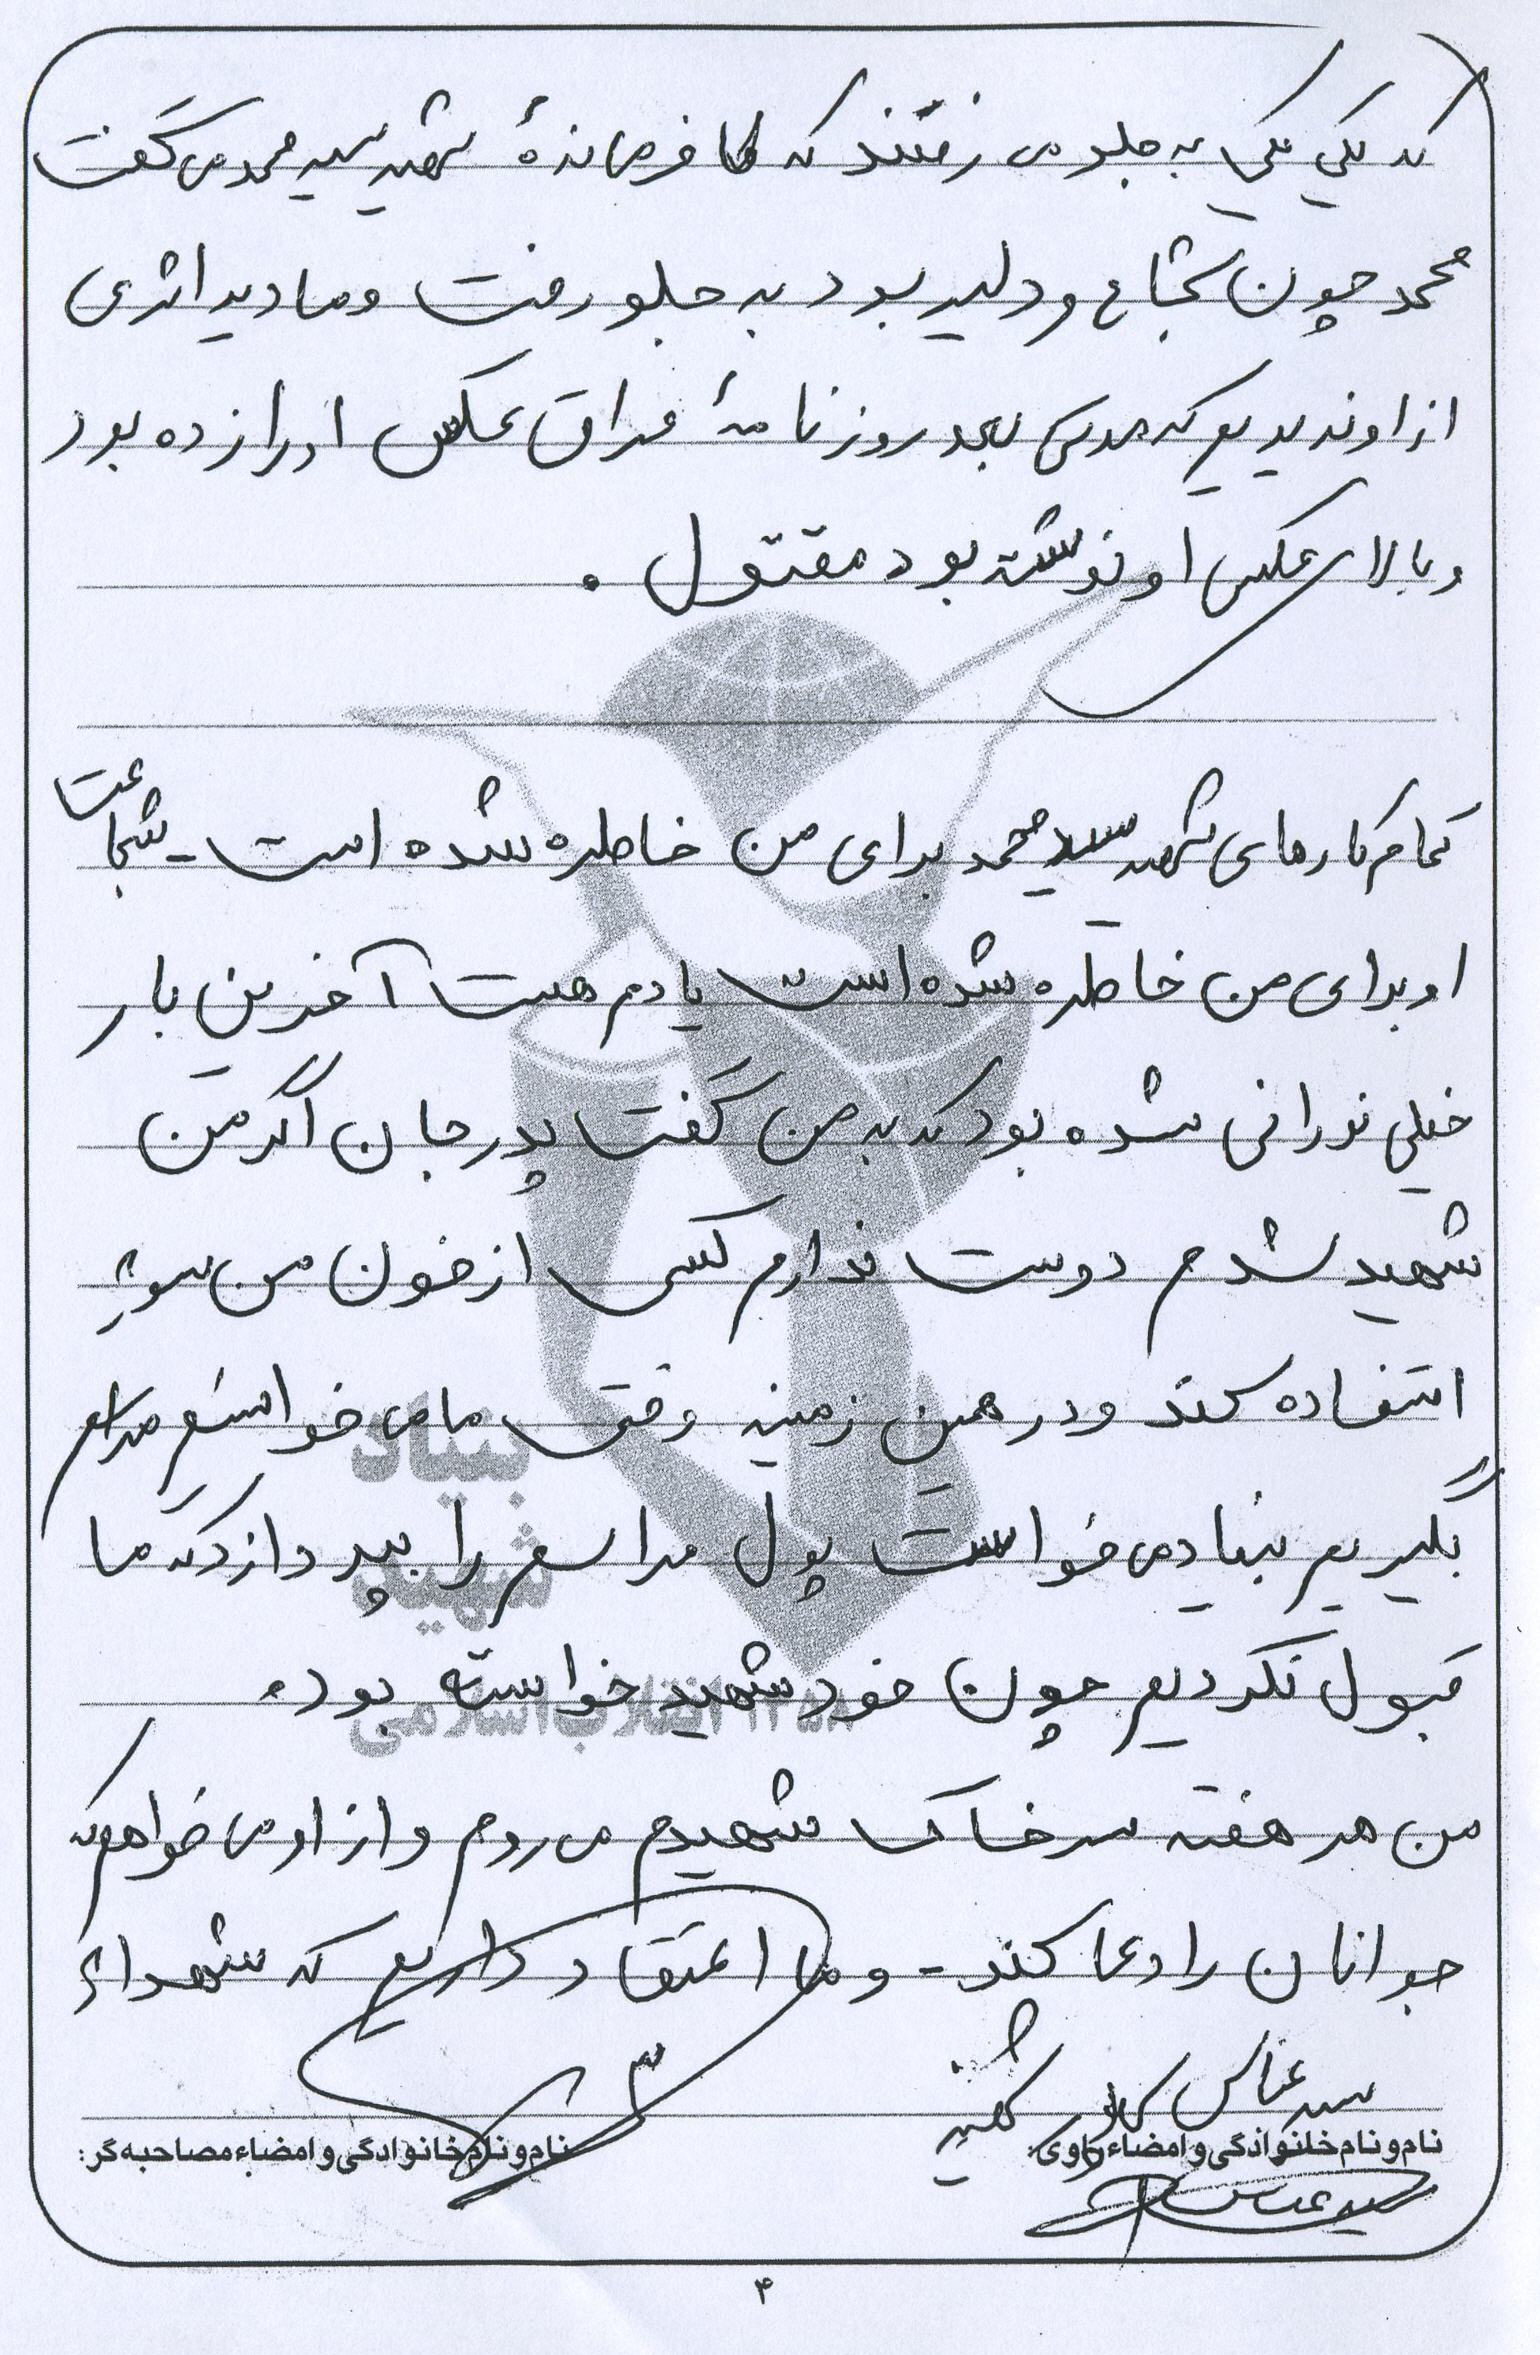 که یکی یکی به جلو می رفتند که فرماندهٔ شهید سید محمد می گفت
محمد چون شجاع و دلیر بود به جلو رفت و ما دیر اثری
از او ندیدیم که مدتی بعد روزنامهٔ عراق عکس او را زده بود
و بالای عکس او نوشته بود مقتول .
تمام کارهای شهید سید محمد برای من خاطره شده است - شجاعت
او برای من خاطره شده است یادم هست آخرین بار
خیلی نورانی شده بود که به من گفت پدر جان اگر من
شهید شدم دوست ندارم کسی از خون من سوء
استفاده کند و در همین زمینه وقتی ما می خواستیم مراسم
بگیریم بنیاد می خواست پول مراسم را بپردازد که ما
قبول نکردیم چون خود شهید خواسته بود.
من هر هفته سر خاک شهیدم می روم و از او می خواهم که
جوانان را دعا کند - و ما اعتقاد داریم که شهداء
سید عباس
نام و نام خانوادگی و امضاء راوی:
نام و نام خانوادگی و امضاء مصاحبه گر:
سید عباس
۴
بنیاد
شهید
انقلاب اسلامی